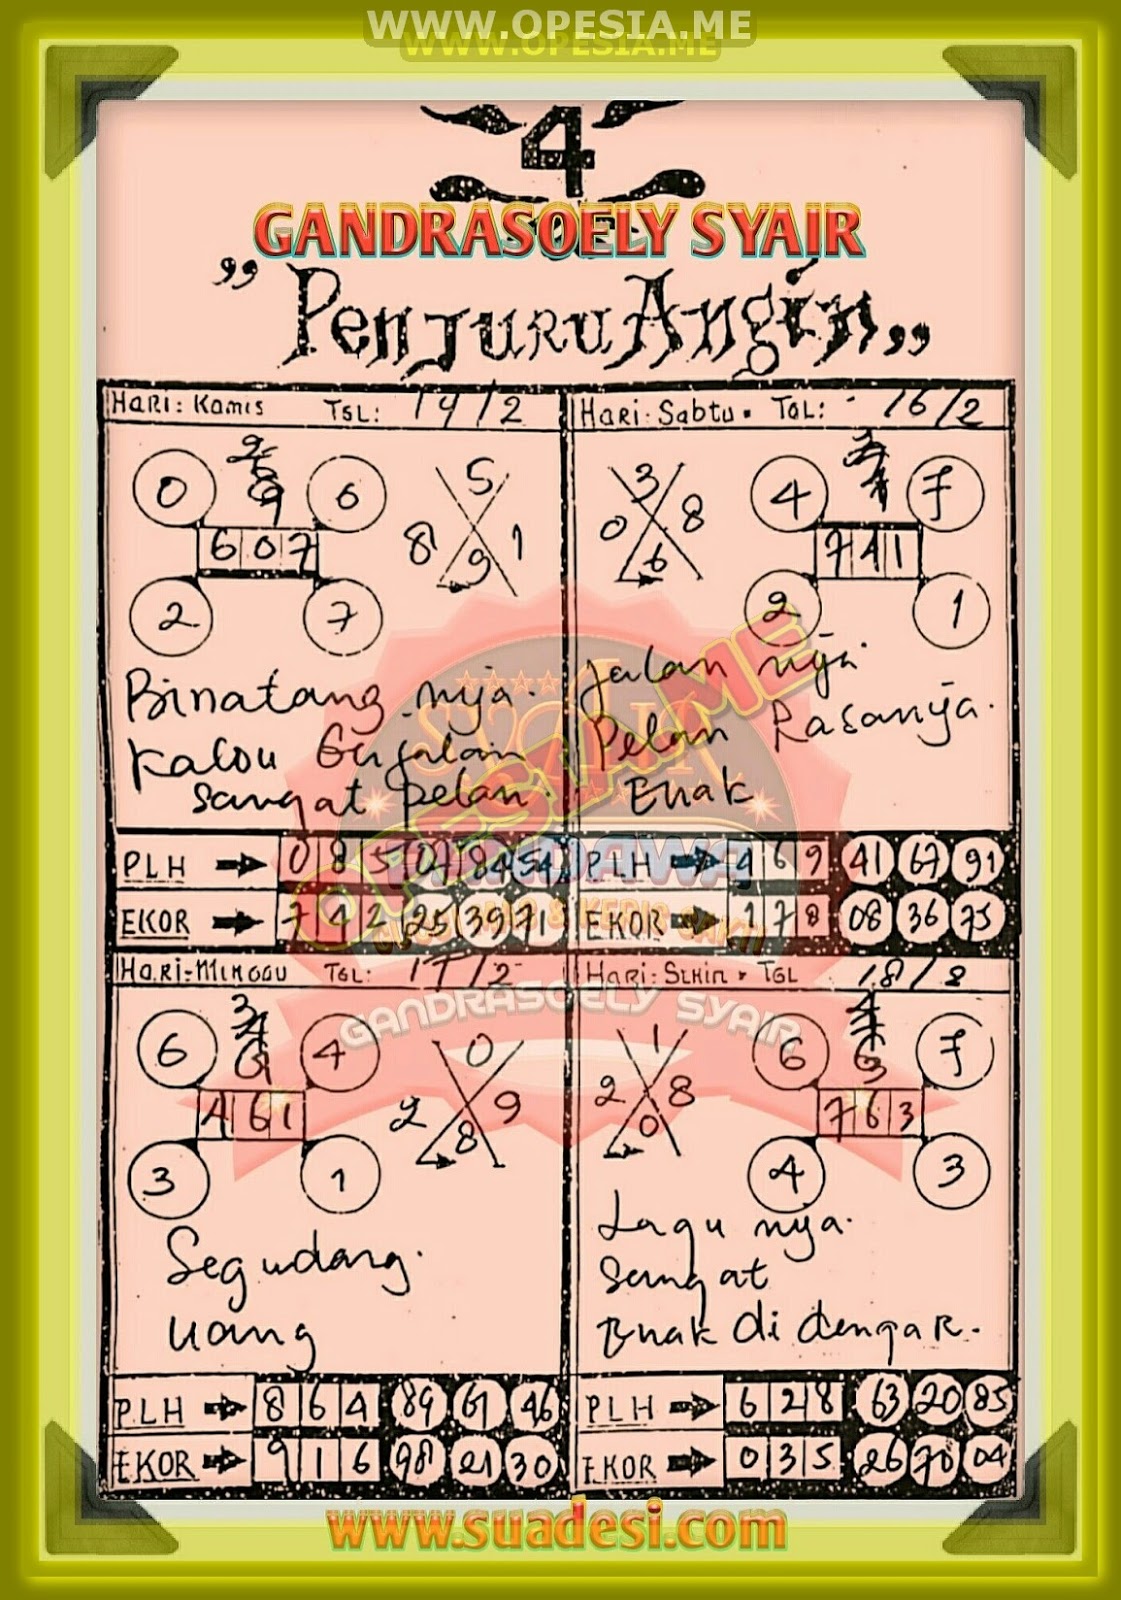 WWW.OPESIA.ME
WWW.OPESIA.ME
4
GANDRASOELY SYAIR
"Penjuru Angin"
HARI: Kamis TGL: 14/2
0 6
6 0 7
2 7
5
8 1
9
Binatang nya.
Kalou Berjalan
Sangat pelan
PLH 0 8 5 04 84 54
EKOR 7 4 2 25 39 71
HARI: Sabtu. TGL: 16/2
3
0 8
6
4 7
7 4 1
2 1
Jalan nya
Pelan Rasanya.
Enak
PLH 4 6 9 41 67 91
EKOR 1 7 8 08 36 75
OPESIA.ME
GANDRASOELY SYAIR
HARI: MINGGU TGL: 17/2
6 4
4 6 1
3 1
0
2 9
8
Segudang.
uang
PLH 8 6 4 89 61 46
EKOR 9 1 6 98 21 30
HARI: SENIN. TGL 18/2
1
2 8
0
6 7
7 6 3
4 3
Lagu nya.
Sangat
Enak di dengar.
PLH 6 2 8 63 20 85
EKOR 0 3 5 26 70 04
www.suadesi.com